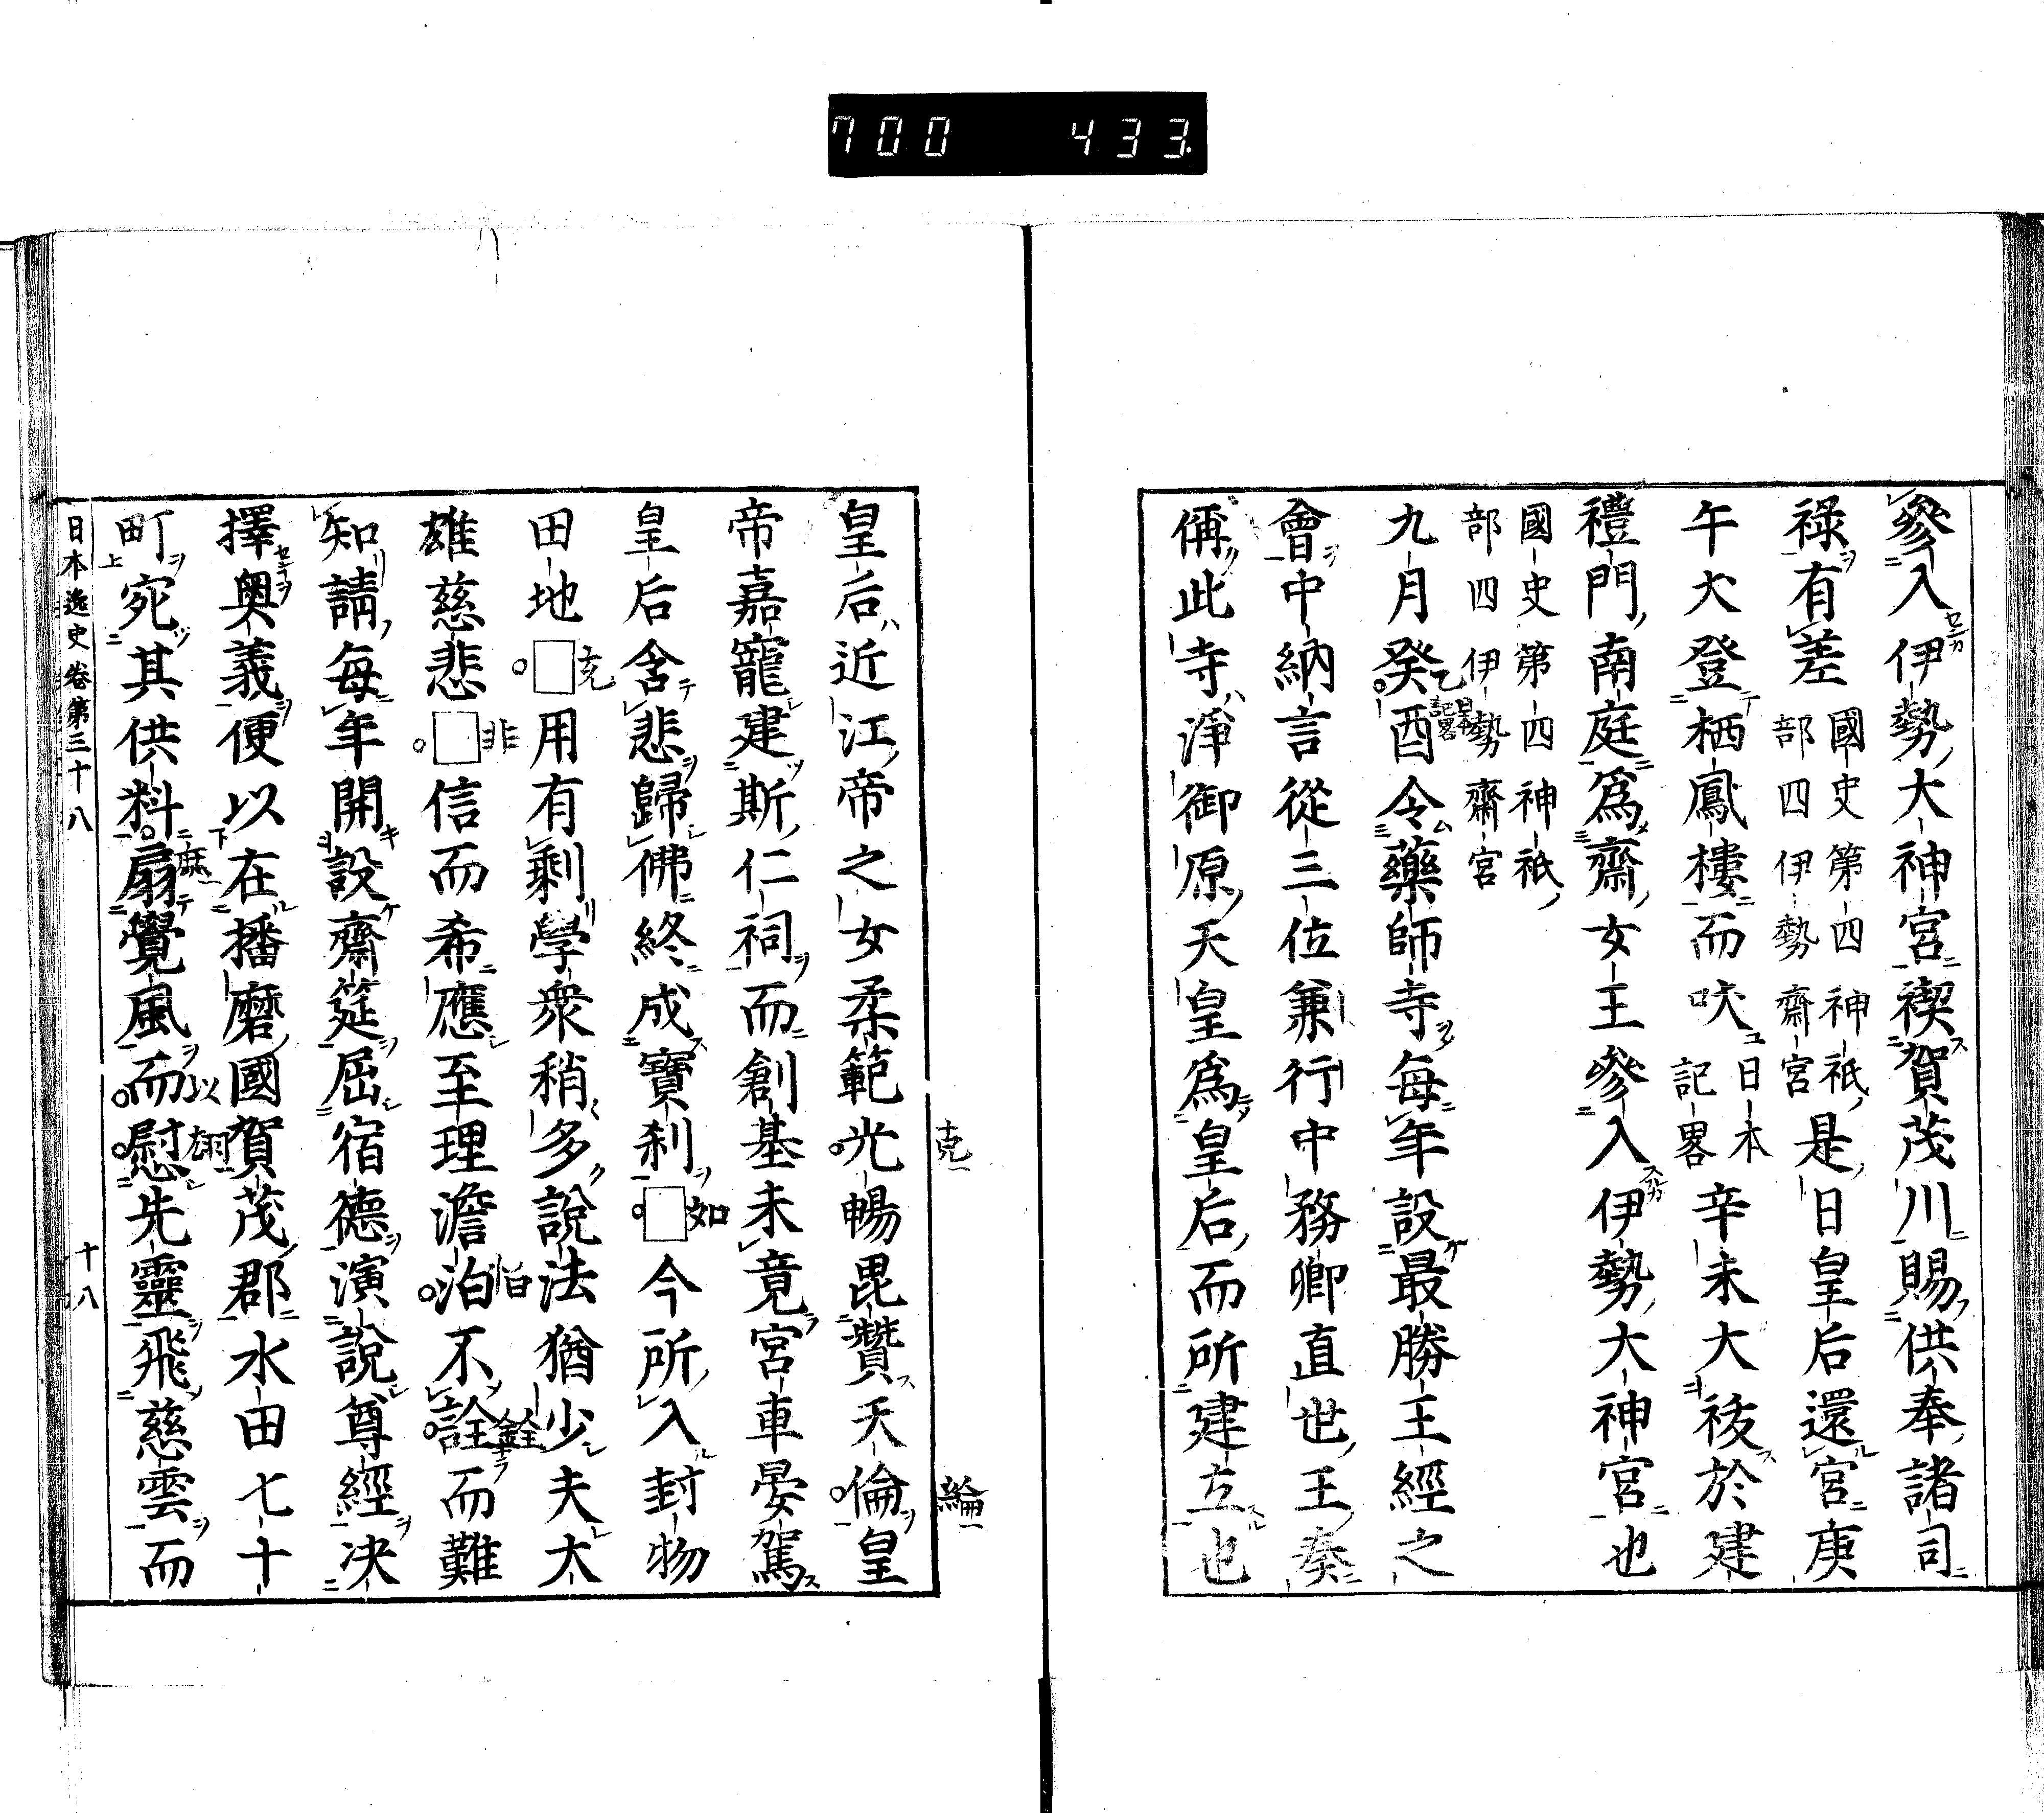 700 433
參入伊勢大神宮禊賀茂川賜供奉諸司
祿有差國史第四神祇部四伊勢齋宮是日皇后還宮庚
午犬登栖鳳樓而吠日本記畧辛未大祓於建
禮門南庭爲齋女王參入伊勢大神宮也
國史第四神祇
部四伊勢齋宮
九月癸酉令藥師寺每年設最勝王經之
會中納言從三位兼行中務卿直世王奏
偁此寺淨御原天皇爲皇后而所建立也
皇后近江帝之女柔範光暢毘贊天倫皇
帝嘉寵建斯仁祠而創基未竟宮車晏駕
皇后含悲歸佛終成寶刹□今所入封物
田地□用有剩學衆稍多說法猶少夫大
雄慈悲□信而希應至理澹泊不詮而難
知請每年開設齋筵屈宿德演說尊經决
擇奧義便以在播磨國賀茂郡水田七十
町宛其供料扇覺風而慰先靈飛慈雲而
日本逸史卷第三十八 十八